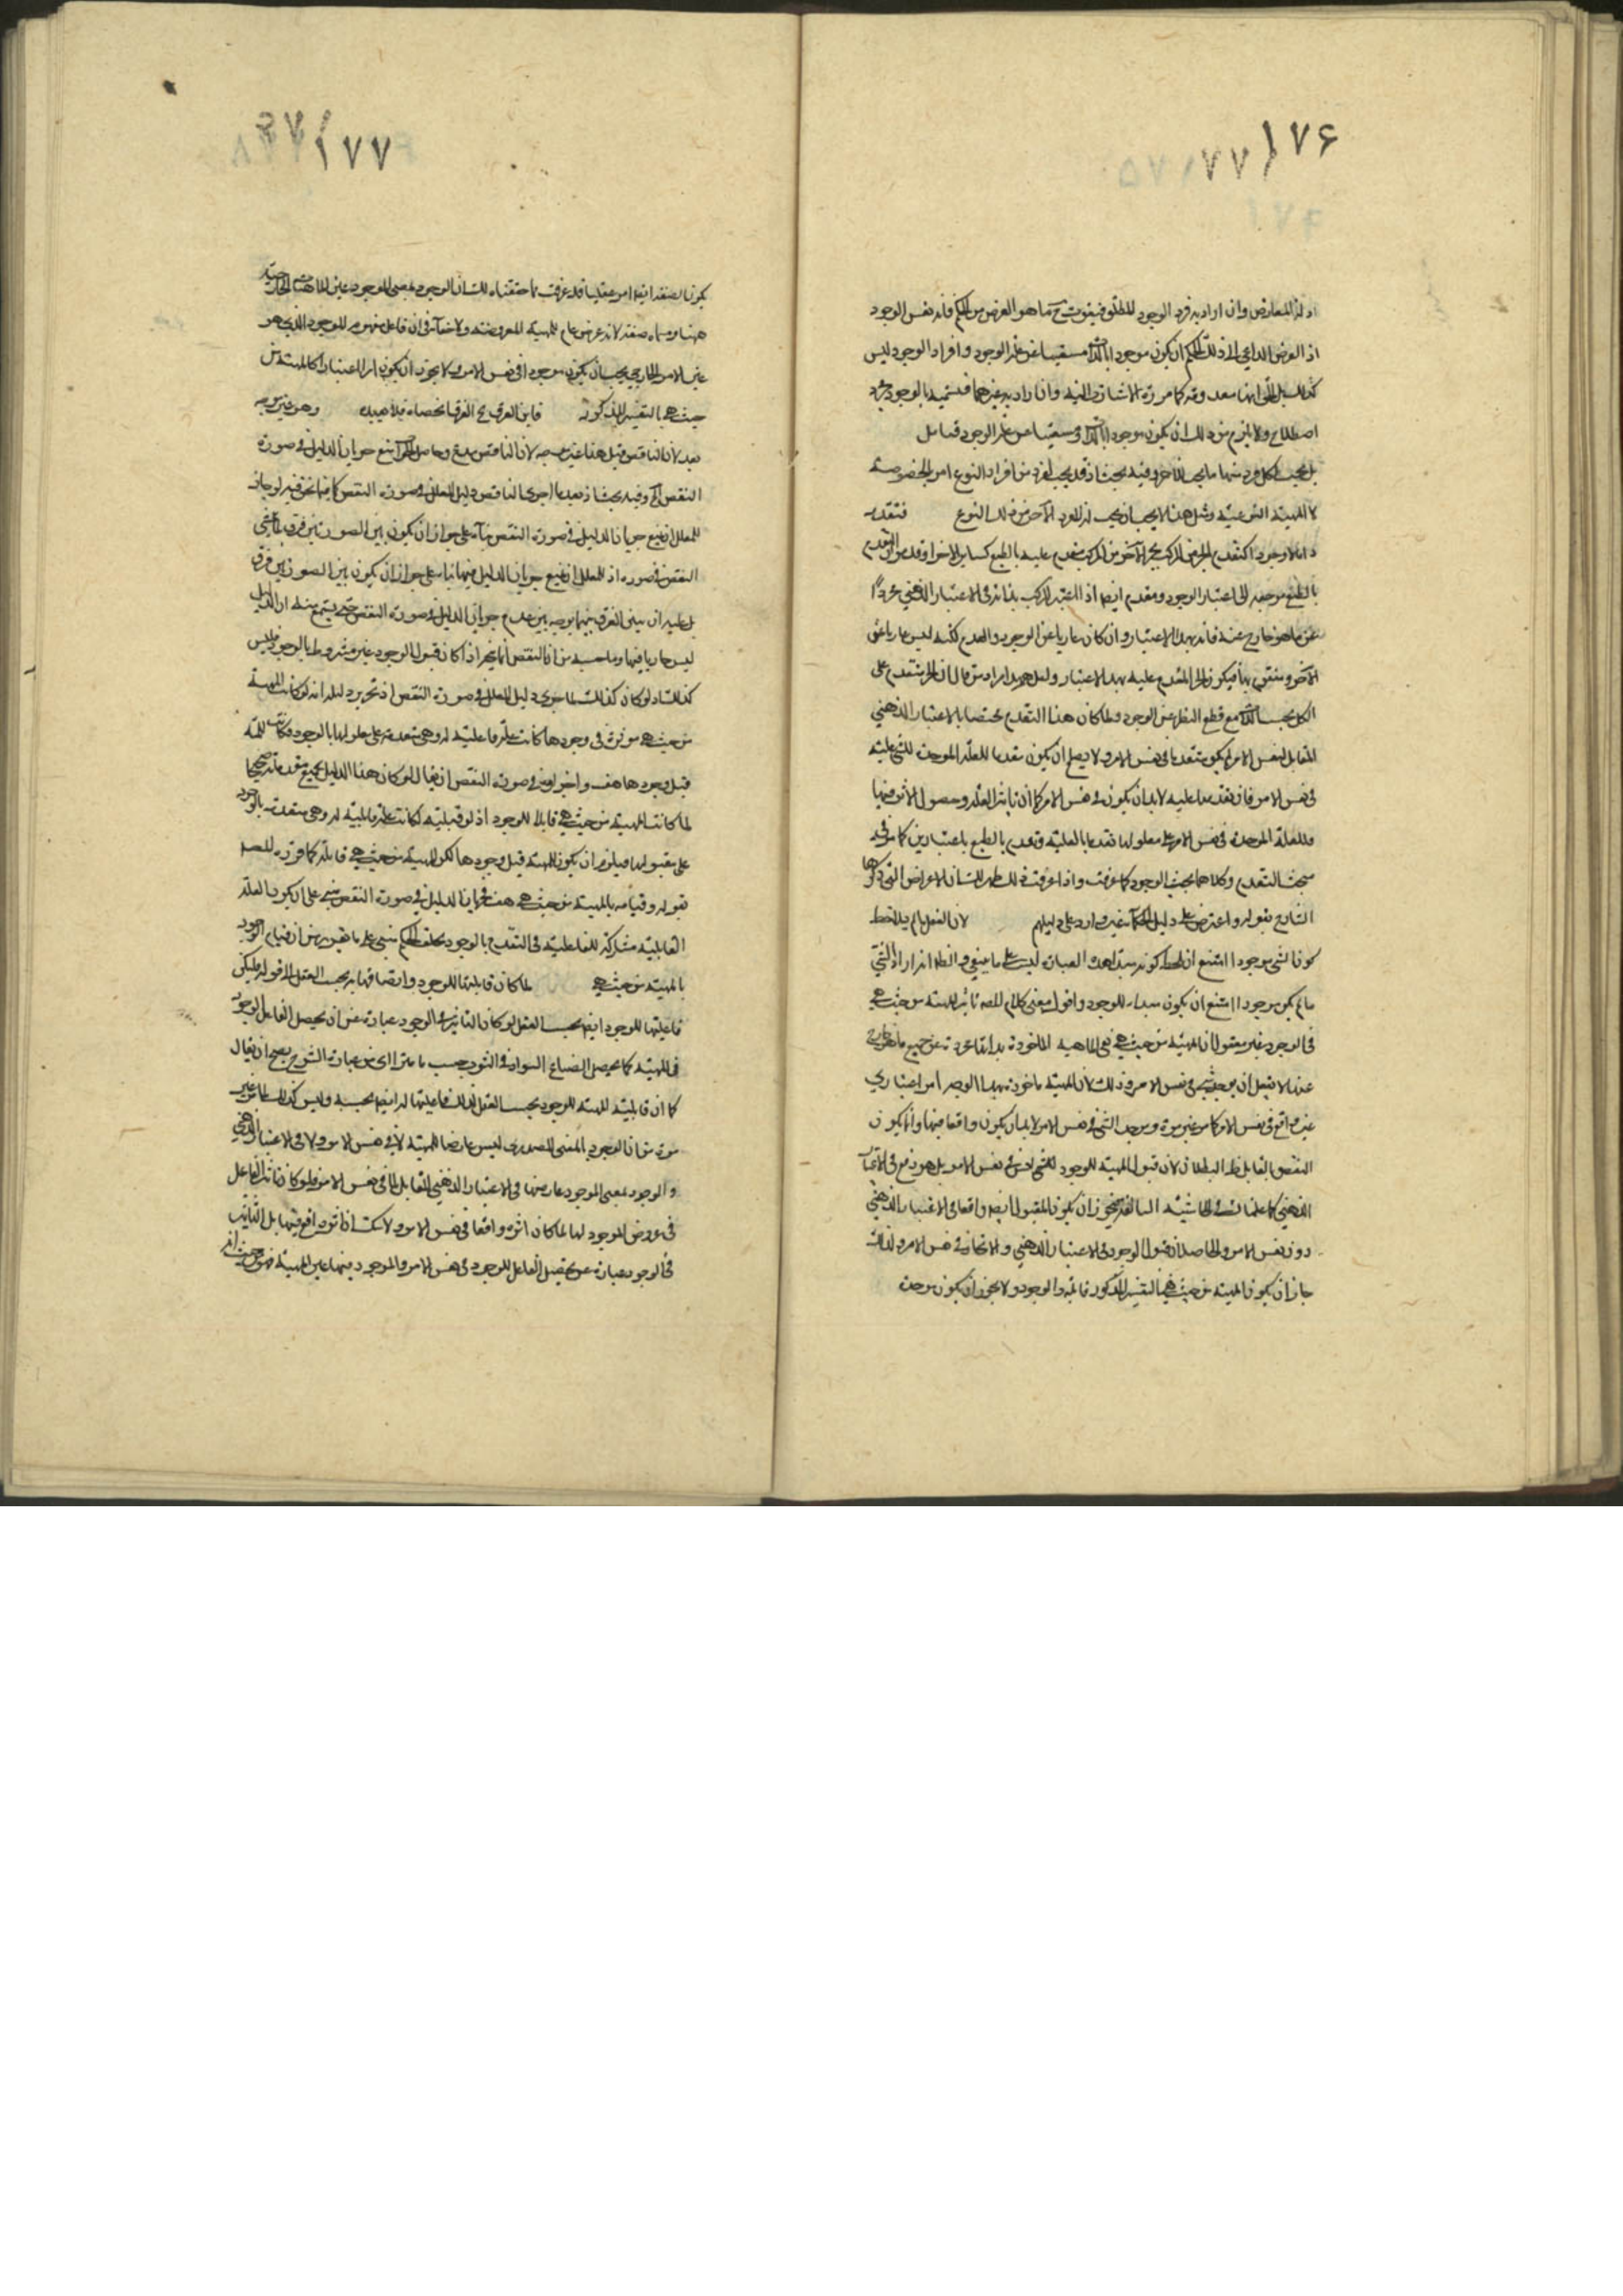 ١٧۶
او لذ المعارض وان اراد به فرد الوجود المطلق فيفوت ح ما هو الغرض من الحكم فانه نفس الوجود
اذ الغرض الداعى الى ذلك الحكم ان يكون موجودا بالذات مستغنيا عن غير الوجود وافراد الوجود ليس
كذلك بل انها معدومة كما مرت الاشارة اليه وان اراد به غيرهما فتسميته بالوجود مجرد
اصطلاح ولا يلزم من ذلك ان يكون موجودا بالذات ومستغنيا عن غير الوجود فتامل
بل يجب لكل فرد منهما ما يجب للاخر وفيه بحث اذ قد يجب لفرد من افراد النوع امر لخصوصيته
لا للمهية النوعية ومثل هذا لا يجب ان يجب لفرد الاخر من ذلك النوع فتقدمه
بالطبع مرجعه الى اعتبار الوجود ومقدم ايضا اذا اعتبر المركب بذاته فى الاعتبار الذهنى مجردا
عن ما هو خارج عنه فانه بهذا الاعتبار وان كان عاريا عن الوجود والعدم لكنه ليس عاريا عن
الاخر ويتقوم بها فيكون الجزء المقدم عليه بهذا الاعتبار ولعل هذا مراد من قال ان الجزء متقدم على
الكل بحسب الذات مع قطع النظر عن الوجود ولما كان هذا التقدم مختصا بالاعتبار الذهنى
المقابل لنفس الامر لم يكن متقدما فى نفس الامر ولا يصلح ان يكون مقدما للعلة الموجدة للشىء عليه
فى نفس الامر فان تقدمها عليه لابد ان يكون فى نفس الامر كما ان تاثير العلة وحصول الاثر فيها
وللعلة الموجدة فى نفس الامر على معلولها تقدما بالعلية وتقدم بالطبع باعتبارين كما مر فى
مبحث التقدم وكلاهما بحسب الوجود كما عرفت واذا عرفت ذلك ظهر لك ان الاعراض التى ذكرها
الشارح بقوله واعترض على دليل الحكماء غير وارد على دليلهم لان العقل ما لم يلاحظ
كون الشىء موجودا امتنع ان يلحظ كونه مبدا هذه العبارة ليست على ما ينبغى والظاهر انه اراد ان الشىء
ما لم يكن موجودا امتنع ان يكون مبداء للوجود واقول معنى كلام المص تاثير المهية من حيث هى
فى الوجود غير معقول ان المهية من حيث هى هى الماهية الماخوذة بذاتها مجردة عن جميع ما هو خارج
عنها لا يعقل ان يوجد شىء فى نفس الامر وذلك لان المهية ماخوذة بهذا الوجه امر اعتبارى
غير واقع فى نفس الامر كما مر غير مرة وموجد الشىء فى نفس الامر لابد ان يكون واقعا فيها وان يكون
النقض بالقابل ظ البطلان لان قبول المهية للوجود ليس فى نفس الامر بل هو فى الاعتبار
الذهنى كما علمناك فى الحاشية السالفة فيجوز ان يكون المقبول ايضا واقعا فى الاعتبار الذهنى
دون نفس الامر والحاصل ان قبول الوجود فى الاعتبار الذهنى والاتحاد فى نفس الامر ولذلك
جاز ان يكون المهية من حيث هى بالتفسير المذكور قابلة للوجود ولا يجوز ان يكون موجدة
١٧٧
يكون الصفة ايضا امر عقليا قد عرفت مما حققناه لك ان الوجود بمعنى الموجود عين الماهية الخارجية
ههنا ومسماه صفة لانه عرض عام للمهية المعروضة ولا خفاء فى ان فاعل مفهوم الموجود الذى هو
عين الامر الخارجى يجب ان يكون موجودا فى نفس الامر ولا يجوز ان يكون امرا اعتباريا كالمهية من
حيث هى بالتفسير المذكور فاين الفرق مع الفرق وهو غير موجه
بعد لان الناقض قيل هذا غير موجه لان الناقض مدع وحاصل الجواب منع جريان الدليل فى صورة
النقض وفيه بحث اذ بعد ما اجرى الناقض دليل المعلل فى صورة النقض كما فيما نحن فيه لو جاز
للمعلل ان يمنع جريان الدليل فى صورة النقض بناء على جواز ان يكون بين الصورتين فرق
النقض فى صورة اذ للمعلل ان يمنع جريان الدليل فيها بناء على جواز ان يكون بين الصورتين فرق
بل عليه ان يبين الفرق بينهما بوجه يبين عدم جريان الدليل فى صورة النقض حتى
ليس جاريا فيها وما حسبه من ان النقض انما يتجه اذا كان قبول الوجود غير مشروط بالوجود وليس
كذلك اذ لو كان كذلك لما جرى دليل المعلل فى صورة النقض اذ تحرير دليله انه لو كانت المهية
من حيث هى موثرة فى وجودها كانت علة فاعلية له وهى متقدمة على معلولها بالوجود فكانت المهية
قبل وجودها هف واجراؤه فى صورة النقض ان يقال لو كان هذا الدليل بجميع مقدماته صحيحا
لما كانت المهية من حيث هى قابلة للوجود اذ لو قبلته لكانت علة قابلية له وهى متقدمة بالوجود
على مقبولها فيلزم ان يكون المهية قبل وجودها لكن المهية من حيث هى قابلة كما قرره المصم
بقوله وقيامه بالمهية من حيث هى هف فجريان الدليل فى صورة النقض مبنى على ان يكون العلة
القابلية مشاركة للفاعلية فى التقدم بالوجود وتخلف الحكم مبنى على ما تقرر من ان قيام الوجود
بالمهية من حيث هى لما كان قابليتها للوجود واتصافها به بحسب العقل الا قوله فليكن
فاعليتها للوجود ايضا بحسب العقل لو كان التاثير فى الوجود عبارة عن ان يحصل الفاعل الوجود
فى المهية كما يحصل الصباغ السواد فى الثوب حسب ما يتراءى من عبارة الشرح يصح ان يقال
كما ان قابلية المهية للوجود بحسب العقل كذلك فاعليتها له ايضا بحسبه وليس كذلك لما مر غير
مرة من ان الوجود بالمعنى المصدرى ليس عارضا للمهية لا فى نفس الامر ولا فى الاعتبار الذهنى
والوجود بمعنى الموجود عارضها فى الاعتبار الذهنى المقابل لما فى نفس الامر فلو كان تاثير الفاعل
فى عروض الوجود لها لما كان اثره واقعا فى نفس الامر ولا شك ان اثره واقع فيها بل التاثير
فى الوجود عبارة عن تحصيل الفاعل للوجود فى نفس الامر والموجود فيها عين المهية